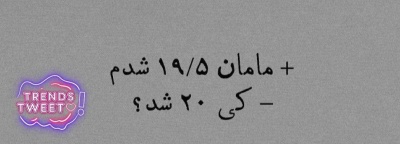 + مامان ۱۹/۵ شدم
- کی ۲۰ شد؟
TRENDS
TWEET